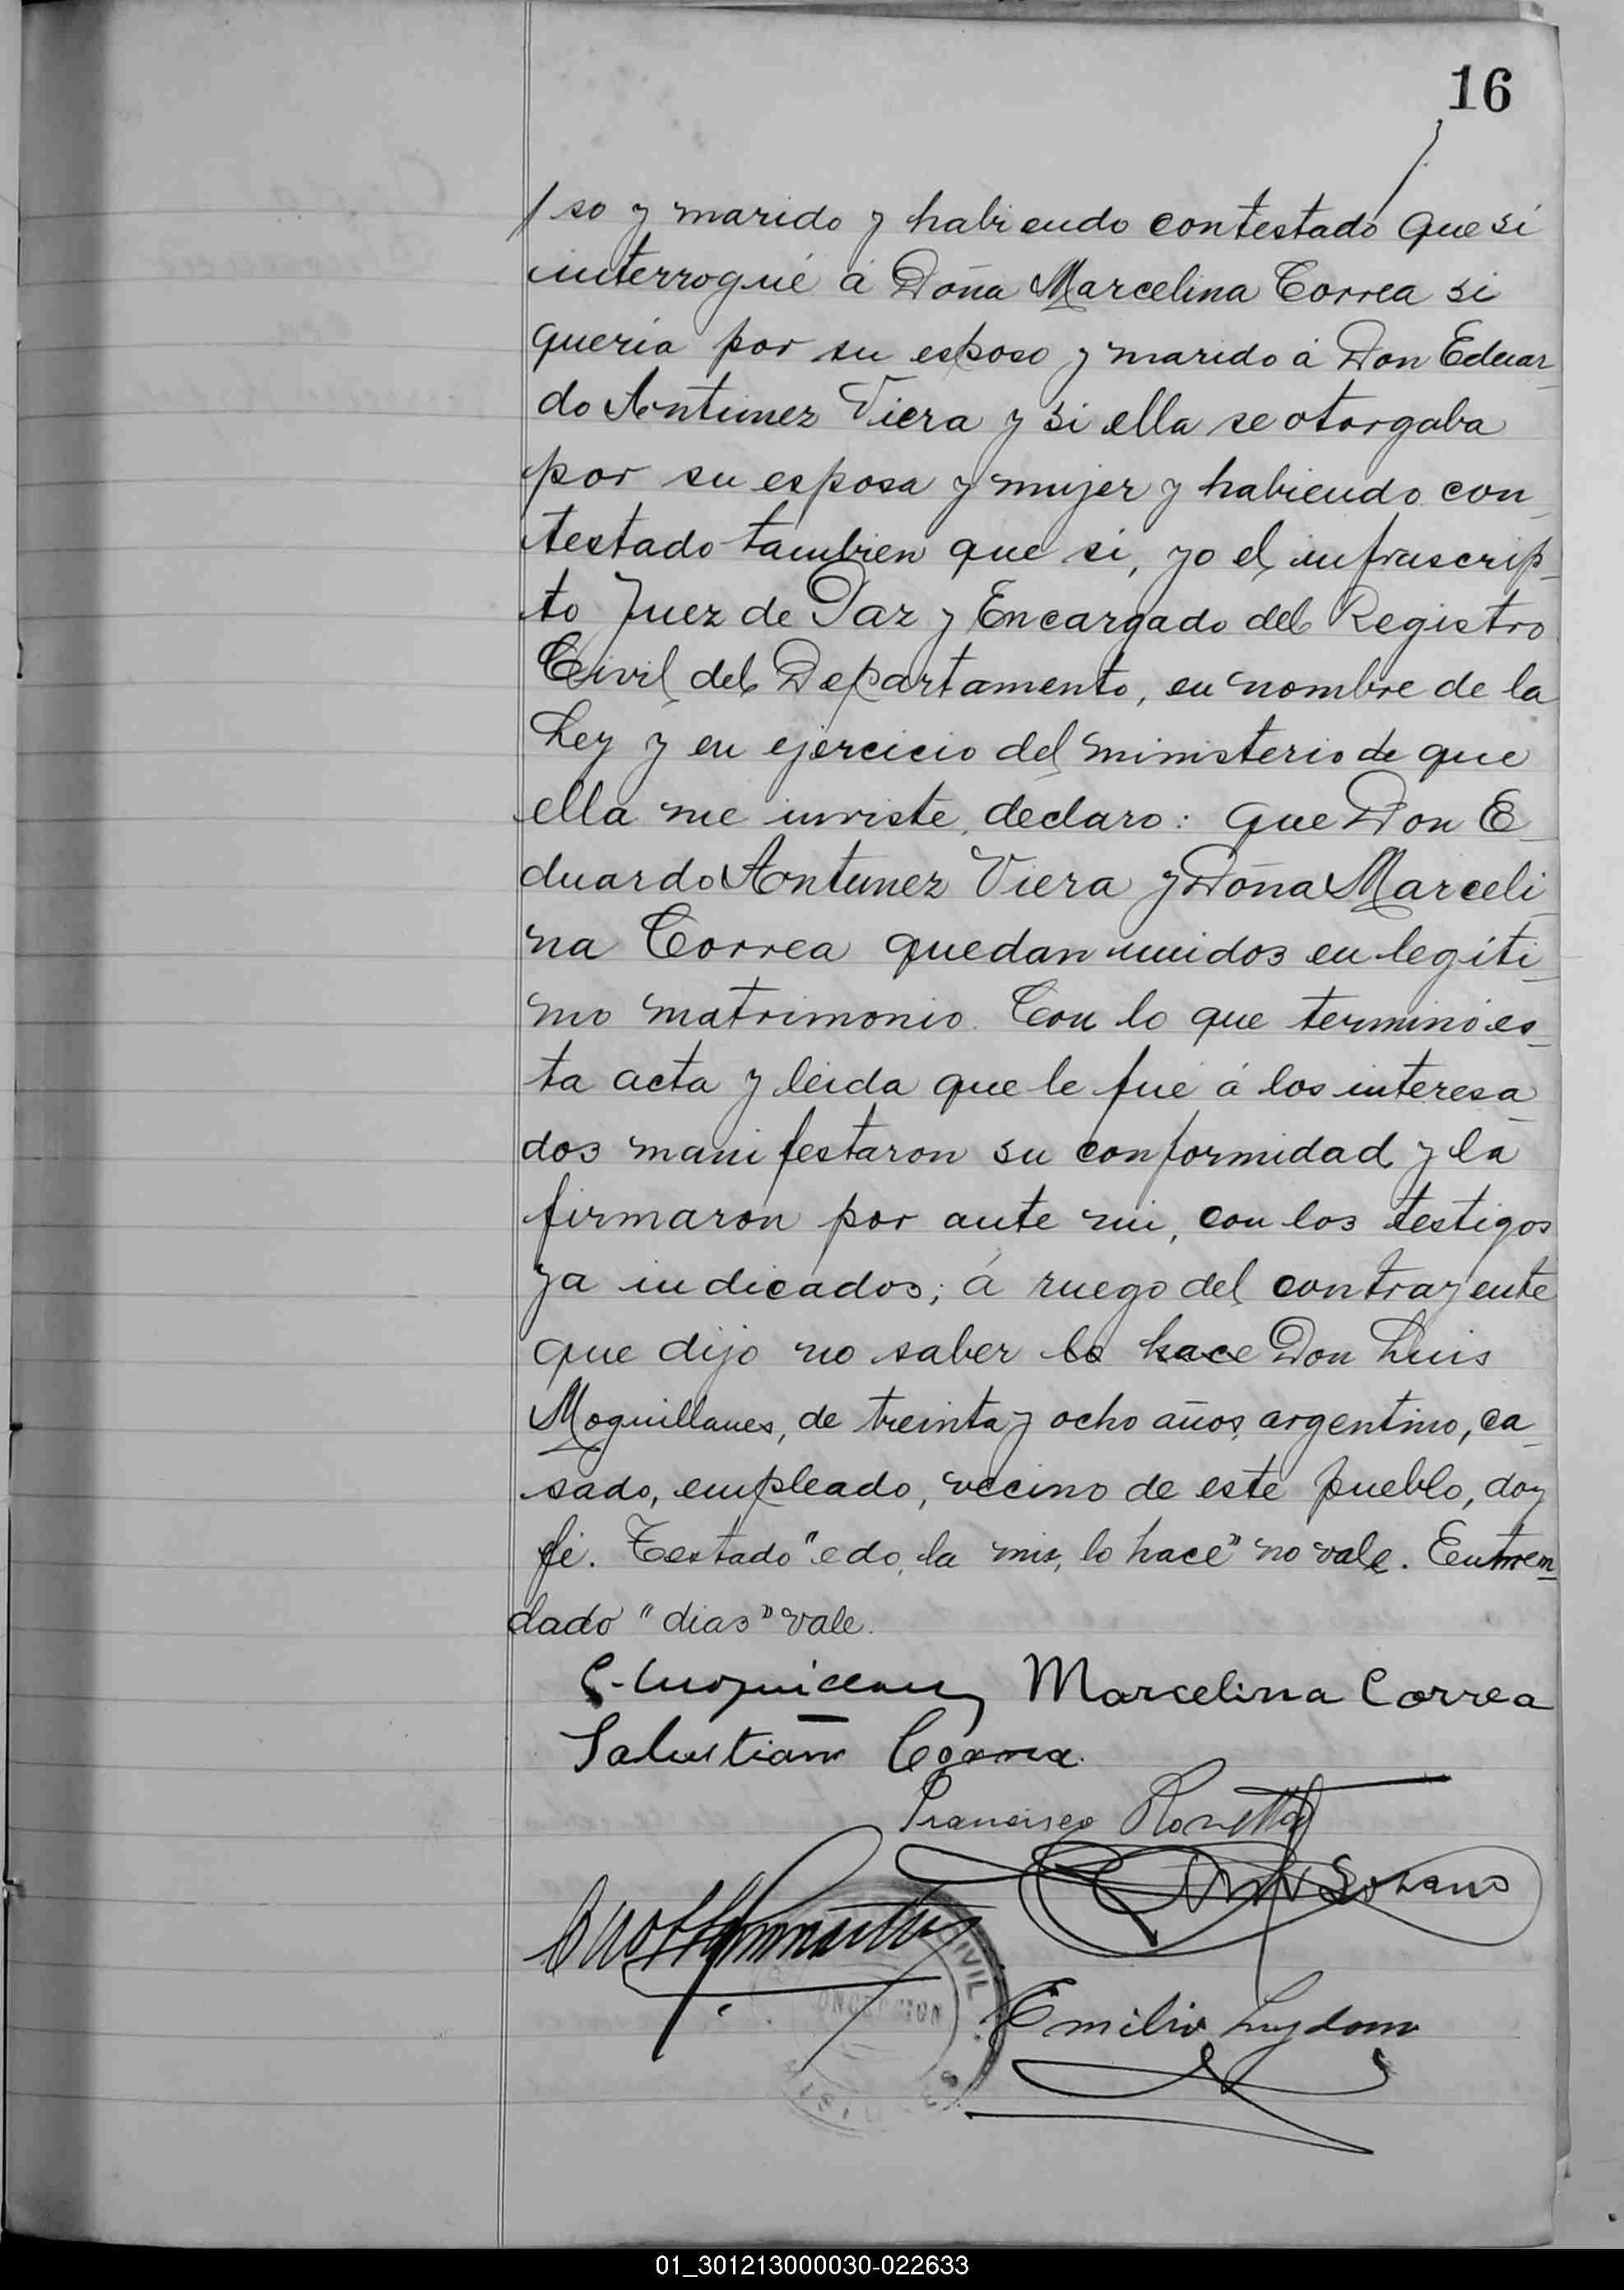 16
/so y marido y habiendo contestado que si
interrogué á Doña Marcelina Correa si
queria por su esposo y marido á Don Eduar-
do Antunez Viera y si ella se otorgaba
por su esposa y mujer y habiendo con-
testado tambien que si, yo el infrascrip-
to Juez de Paz y Encargado del Registro
Civil del Departamento, en nombre de la
Ley y en ejercicio del ministerio de que
ella me inviste, declaro: que Don E-
duardo Antunez Viera y Doña Marceli-
na Correa quedan unidos en legiti-
mo matrimonio. Con lo que terminó es-
ta acta y leida que le fué á los interesa-
dos manifestaron su conformidad y la
firmaron por ante mi, con los testigos
ya indicados; á ruego del contrayente
que dijo no saber lo hace Don Luis
Moquillanes, de treinta y ocho años, argentino, ca-
sado, empleado, vecino de este pueblo, doy
fé. Testado "edo, la mis, lo hace" no vale. Enmen-
dado "dias" vale.
Marcelina Correa
Salustiano Correa
Francisco
Solano
Emilio
CIVIL
01_301213000030-022633